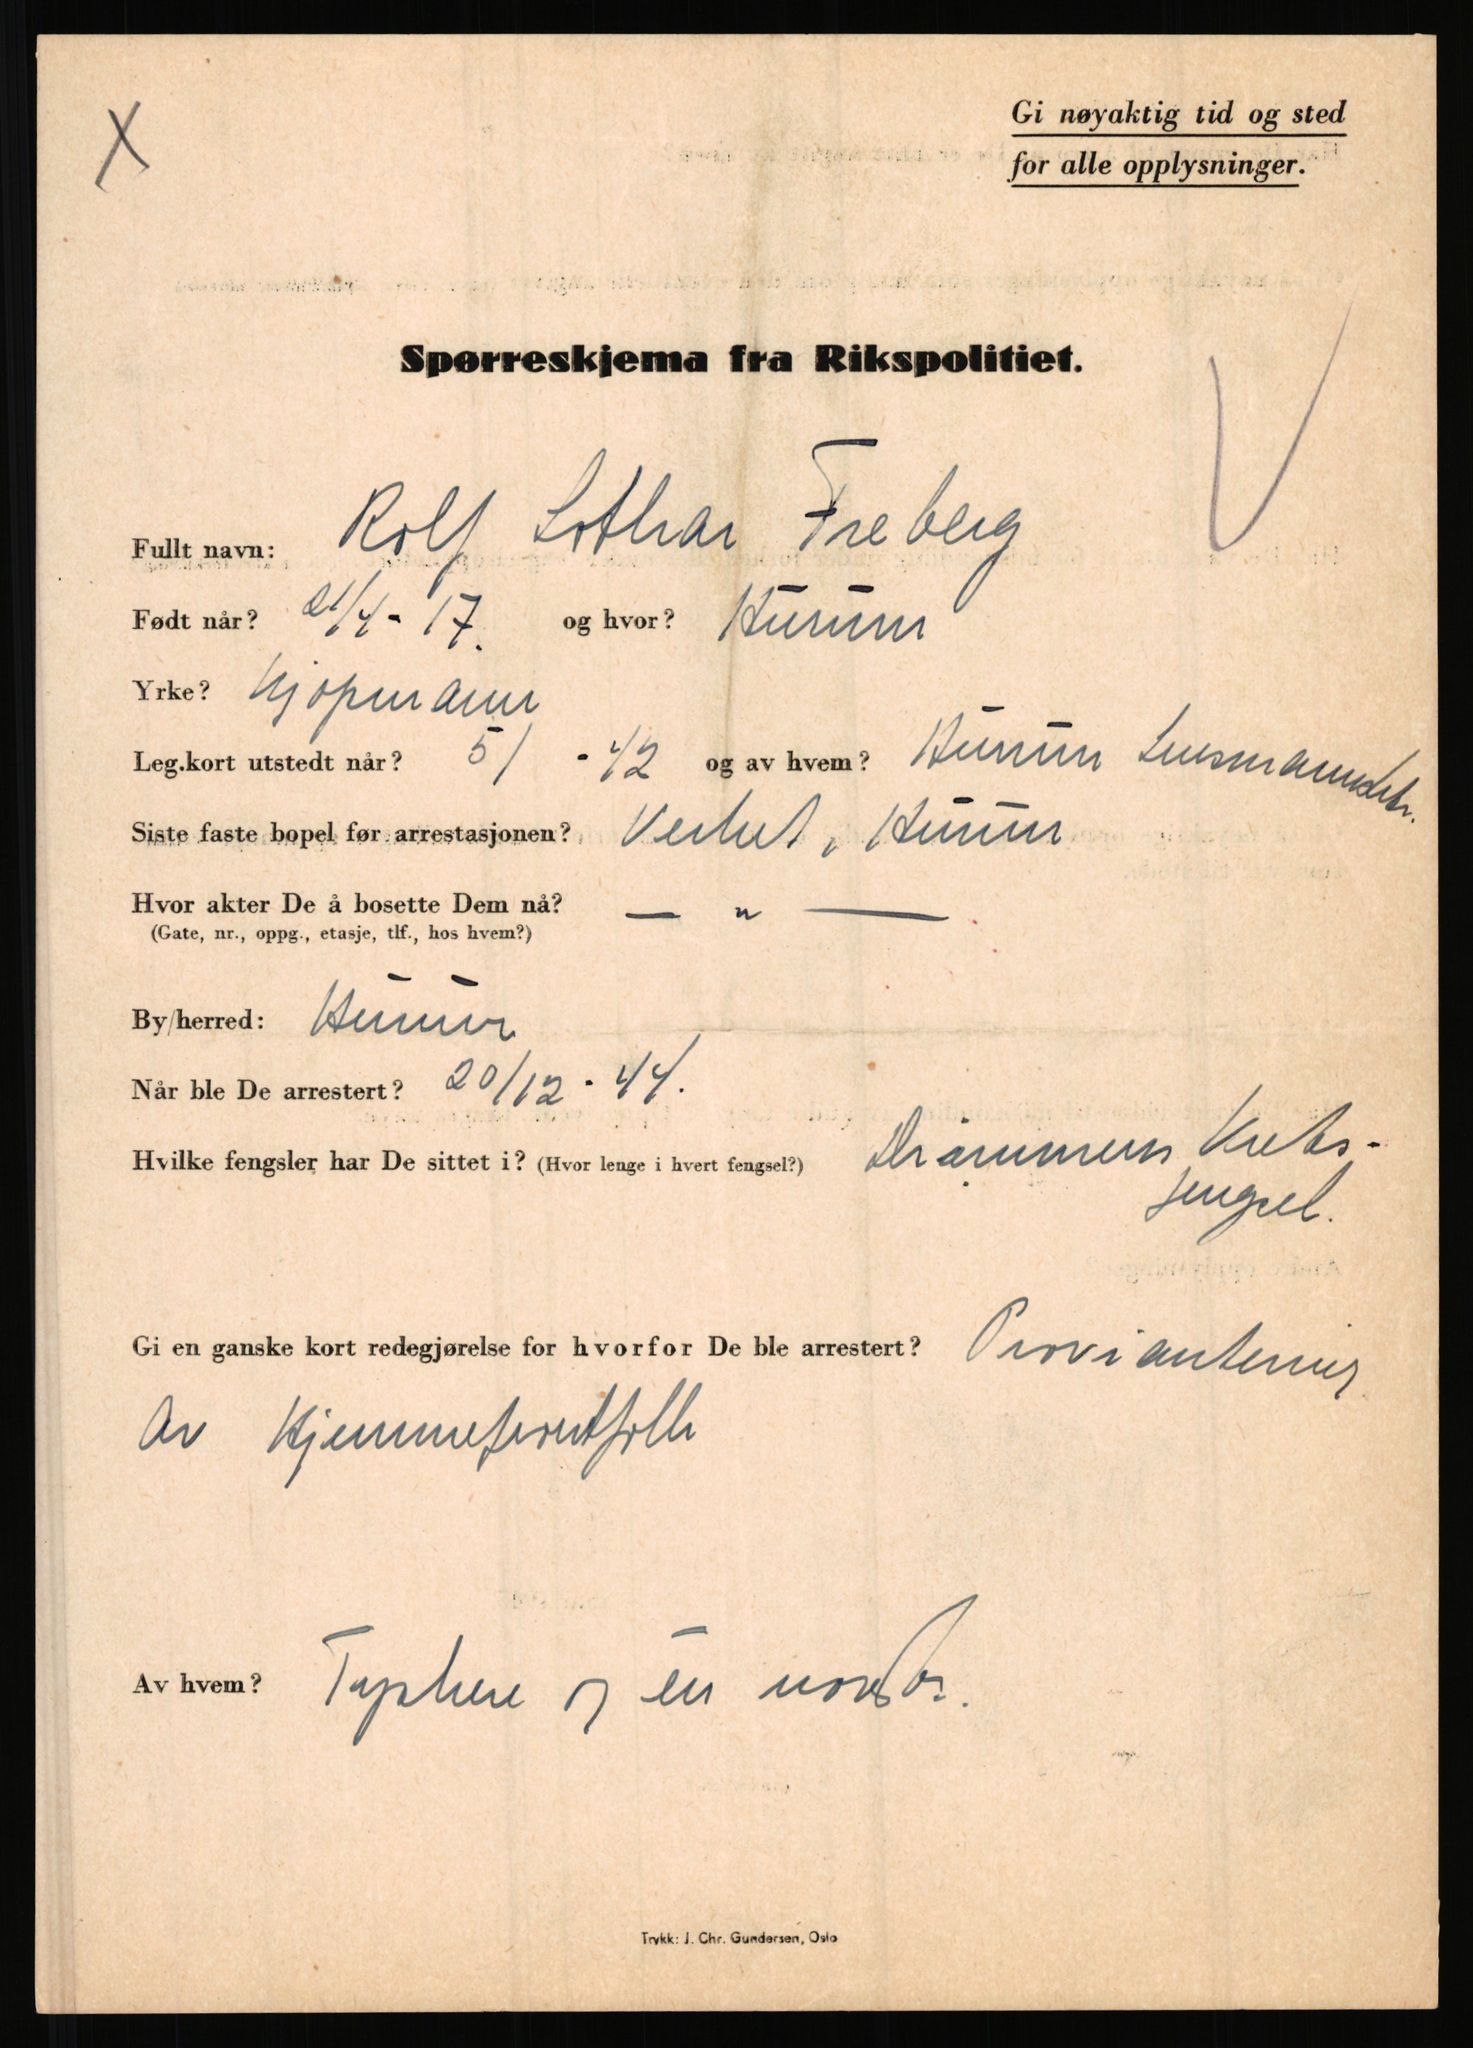 X
Gi nøyaktig tid og sted
for alle opplysninger.
Spørreskjema fra Rikspolitiet.
V
Fullt navn: Rolf Lothar Freberg
Født når? 21/4 - 17. og hvor? Hurum
Yrke? Kjøpmann
Leg.kort utstedt når? 5/ - 42 og av hvem? Hurum Lensmannsktr.
Siste faste bopel før arrestasjonen? Verket, Hurum
Hvor akter De å bosette Dem nå? — " —
(Gate, nr., oppg., etasje, tlf., hos hvem?)
By/herred: Hurum
Når ble De arrestert? 20/12 - 44.
Hvilke fengsler har De sittet i? (Hvor lenge i hvert fengsel?) Drammens Krets-
fengsel.
Gi en ganske kort redegjørelse for hvorfor De ble arrestert? Proviantering
av Hjemmefrontfolk
Av hvem? Tyskere og en norsk.
Trykk: J. Chr. Gundersen, Oslo